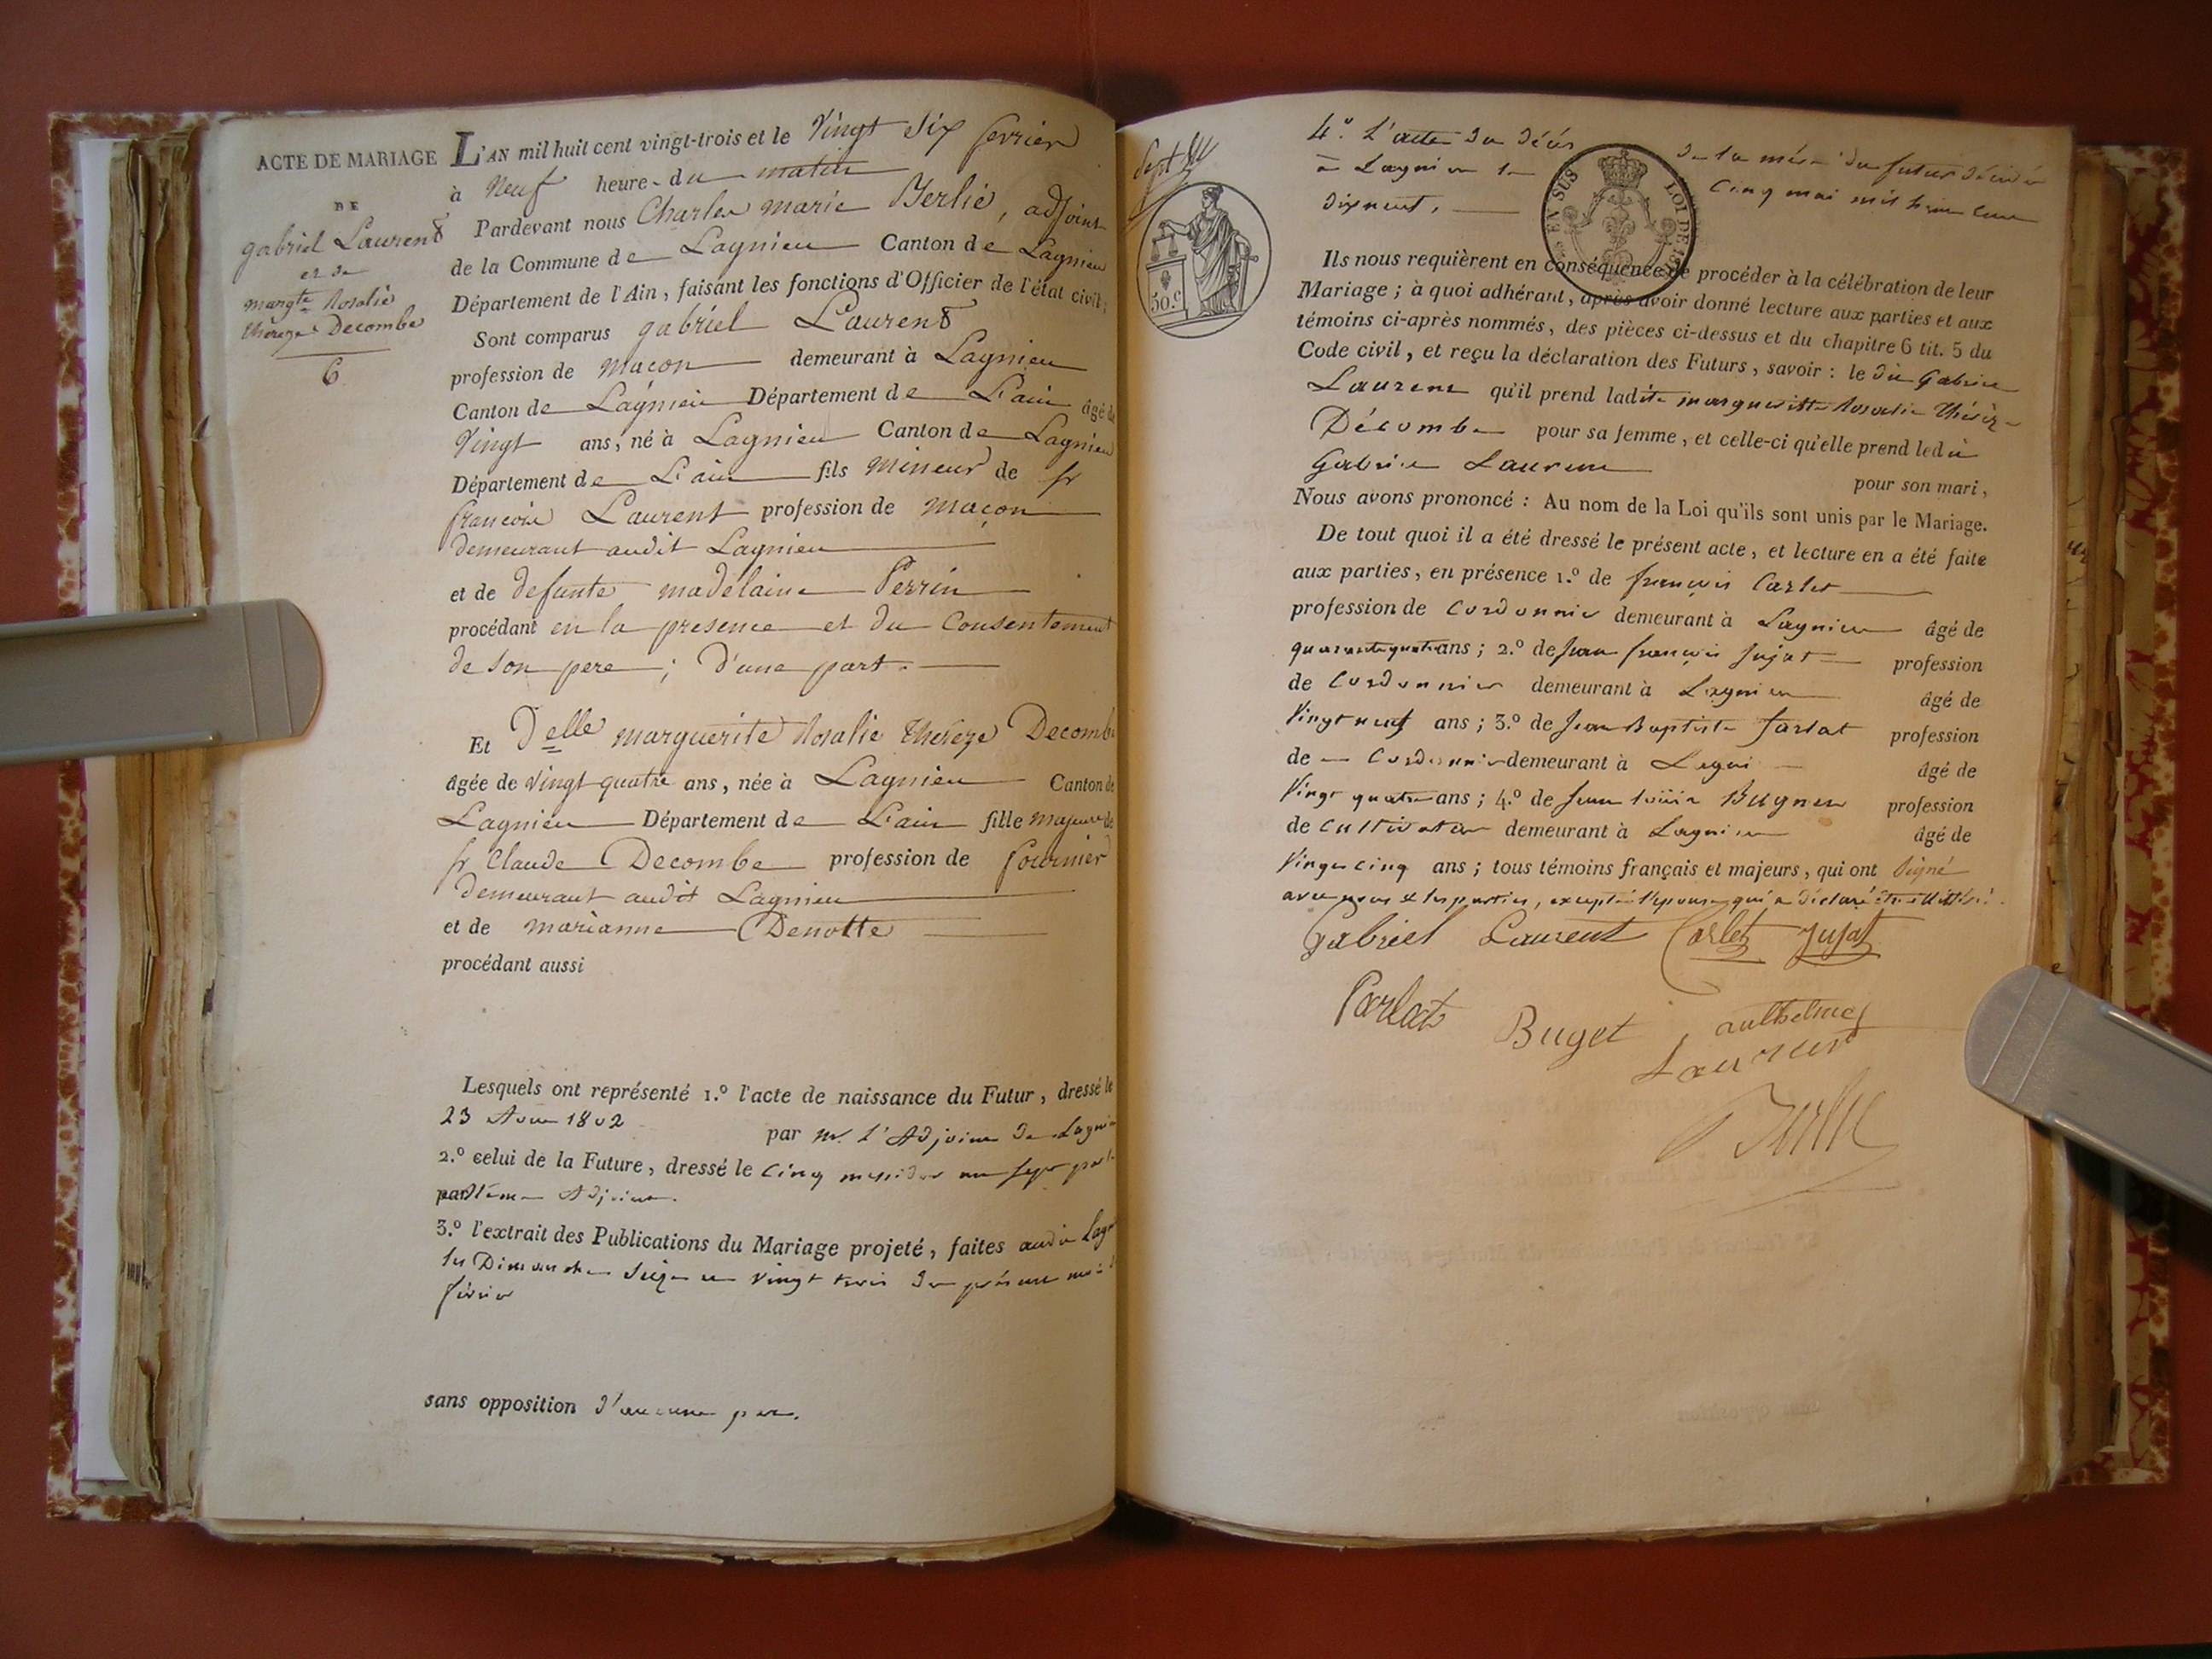 ACTE DE MARIAGE
DE
gabriel Laurent
et de
margte Rosalie
thereze Decombe
6
L'AN mil huit cent vingt-trois et le Vingt Six fevrier
à Neuf heures du matin
Pardevant nous Charles marie Berlié, adjoint
de la Commune de Lagnieu Canton de Lagnieu
Département de l'Ain, faisant les fonctions d'Officier de l'état civil;
Sont comparus gabriel Laurent
profession de macon demeurant à Lagnieu
Canton de Lagnieu Département de L'ain âgé de
Vingt ans, né à Lagnieu Canton de Lagnieu
Département de L'ain fils Mineur de fr
francois Laurent profession de maçon
demeurant audit Lagnieu
et de defunte madelaine Perrin
procédant en la presence et du Consentement
de Son pere ; D'une part.
Et Delle marguerite Rosalie Thereze Decombe
âgée de Vingt quatre ans, née à Lagnieu Canton de
Lagnieu Département de L'ain fille majeure de
fr Claude Decombe profession de fournier
demeurant audit Lagnieu
et de marianne Denotte
procédant aussi
Lesquels ont représenté 1.º l'acte de naissance du Futur, dressé le
23 1802 par mr L'Adjoint de Lagnieu
2.º celui de la Future, dressé le Cinq messidor an Sept
par Adjoint.
3.º l'extrait des Publications du Mariage projeté, faites audit Lagnieu
les Dimanches Seize et Vingt trois du présent mois
février
sans opposition d'aucune part.
4º. L'acte du décès de la mère du futur décédée
à Lagnieu le Cinq mai mil huit cent
dix neuf,
EN SUS LOI DE
50.c
Ils nous requièrent en conséquence de procéder à la célébration de leur
Mariage ; à quoi adhérant, après avoir donné lecture aux parties et aux
témoins ci-après nommés, des pièces ci-dessus et du chapitre 6 tit. 5 du
Code civil, et reçu la déclaration des Futurs, savoir : le dit Gabriel
Laurent qu'il prend ladite margueritte Rosalie Thérèze
Décombe pour sa femme, et celle-ci qu'elle prend ledit
Gabriel Laurent pour son mari,
Nous avons prononcé : Au nom de la Loi qu'ils sont unis par le Mariage.
De tout quoi il a été dressé le présent acte, et lecture en a été faite
aux parties, en présence 1.º de françois Carlet
profession de Cordonnier demeurant à Lagnieu âgé de
quarante quatre ans ; 2.º de Jean françois Jujat profession
de Cordonnier demeurant à Lagnieu âgé de
Vingt neuf ans ; 3.º de Jean Baptiste profession
de Cordonnier demeurant à Lagnieu âgé de
Vingt quatre ans ; 4.º de Jean profession
de Cultivateur demeurant à Lagnieu âgé de
Vingt cinq ans ; tous témoins français et majeurs, qui ont Signé
avec nous et les parties, excepté l'épouse qui a déclaré être illitérée.
Gabriel Laurent Carlet Jujat
Parlat Buget anthelme
Laurent
Berlié